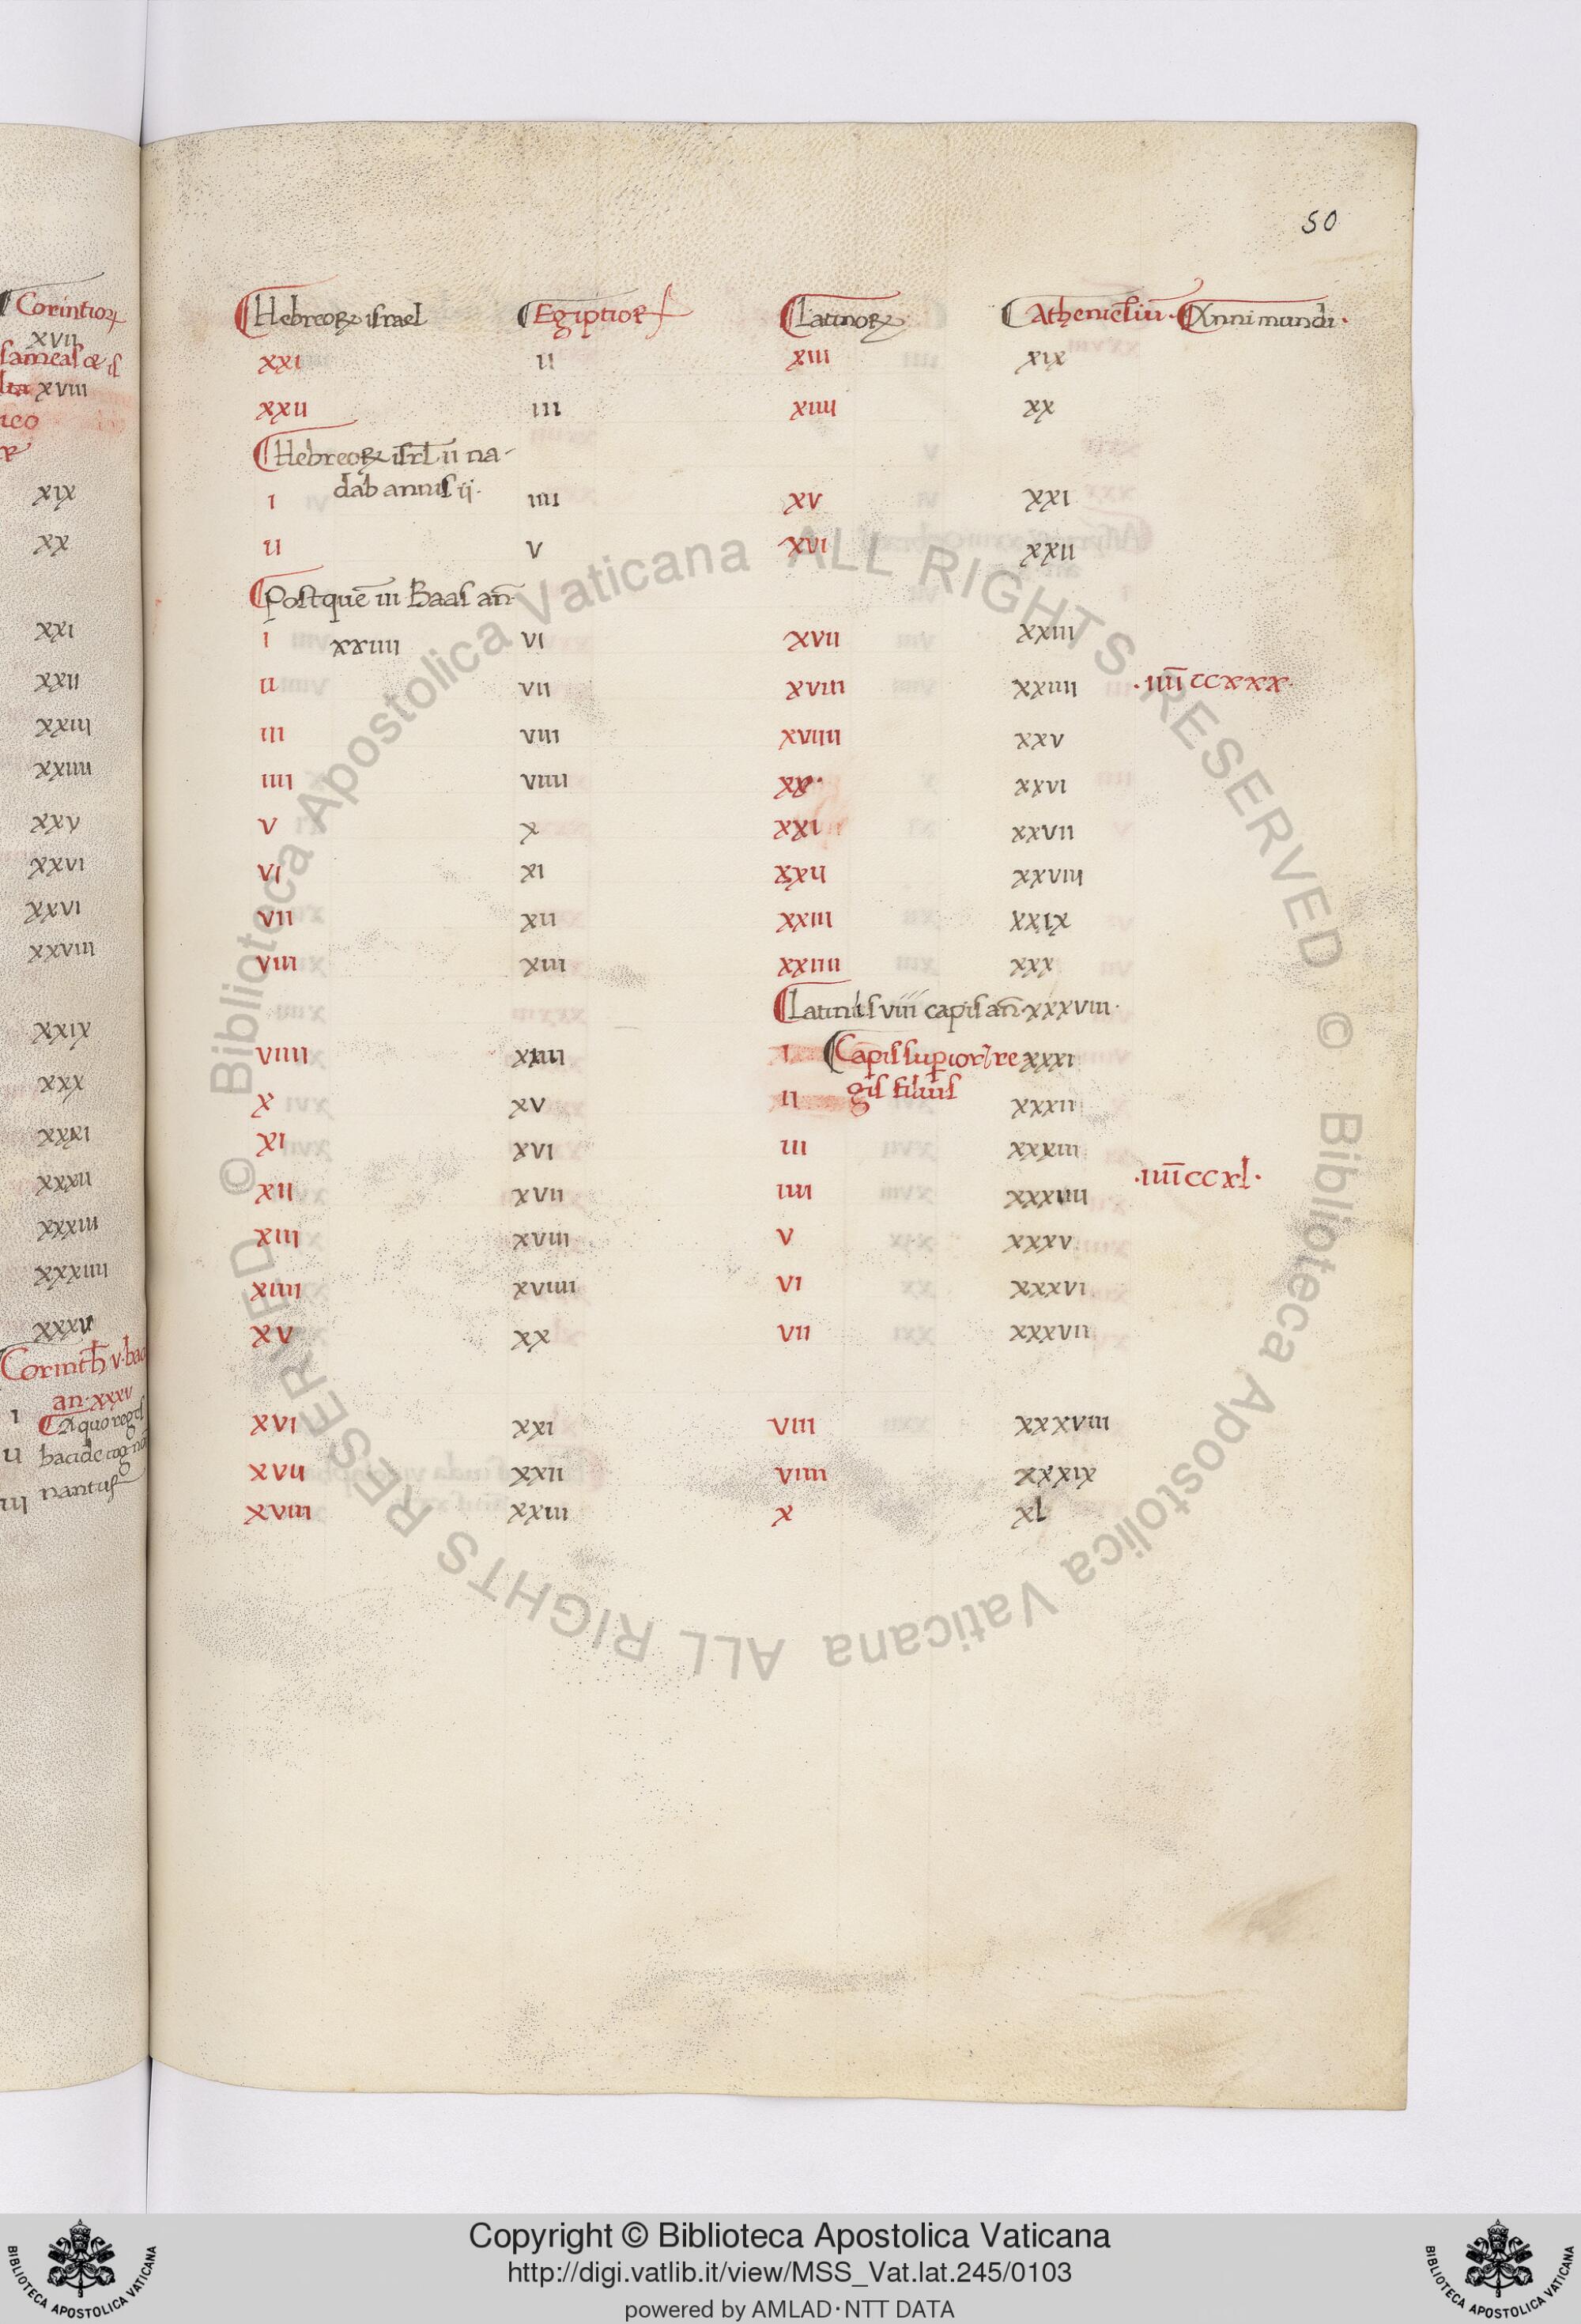 50
Corintioꝝ
XVII
sameas &
XVIII
ico
XIX
XX
XXI
XXII
XXIII
XXIIII
XXV
XXVI
XXVI
XXVIII
XXIX
XXX
XXXI
XXXII
XXXIII
XXXIIII
XXXV
Corinth V. bac
an. XXXV
I A quo regis
II bacide cogno
III nantur
Hebreoꝝ israel Egiptioꝝ Latinoꝝ Atheniēsiū. Anni mundi.
XXI II XIII XIX
XXII III XIIII XX
Hebreoꝝ isrl II na-
dab annis ij.
I IIII XV XXI
II V XVI XXII
Postquē III Baas añ
I XXIIII VI XVII XXIII
II VII XVIII XXIIII .IIII̅ CCXXX.
III VIII XVIIII XXV
IIII VIIII XX. XXVI
V X XXI XXVII
VI XI XXII XXVIII
VII XII XXIII XXIX
VIII XIII XXIIII XXX
Latinis VIII capis añ XXXVIII.
VIIII XIIII I Capis supior̄ re XXXI
gis filius
X XV II XXXII
XI XVI III XXXIII
XII XVII IIII XXXIIII .IIII̅ CCXL.
XIII XVIII V XXXV
XIIII XVIIII VI XXXVI
XV XX VII XXXVII
XVI XXI VIII XXXVIII
XVII XXII VIIII XXXIX
XVIII XXIII X XL
© Biblioteca Apostolica Vaticana ALL RIGHTS RESERVED © Biblioteca Apostolica Vaticana ALL RIGHTS RESERVED
Copyright © Biblioteca Apostolica Vaticana
http://digi.vatlib.it/view/MSS_Vat.lat.245/0103
powered by AMLAD·NTT DATA
BIBLIOTECA APOSTOLICA VATICANA
BIBLIOTECA APOSTOLICA VATICANA